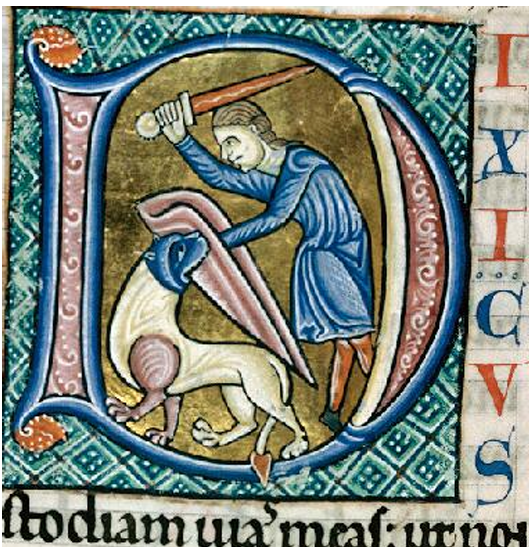 D
IXICVS
stodiam uia' meas: ut no